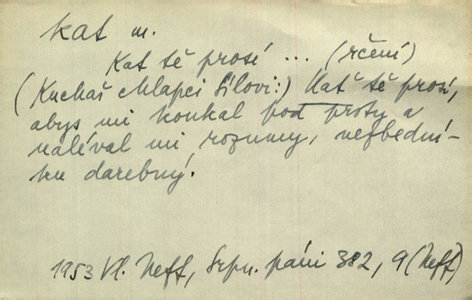 kat m.
Kat tě prosí ... (rčení)
(Kuchař chlapci Sílovi:) Kat tě prosí,
abys mi koukal pod prsty a
naléval mi rozumy, nefbední-
ku darebný.
1953 Vl. Neff, Srpn. páni 382, 9 (Neff)